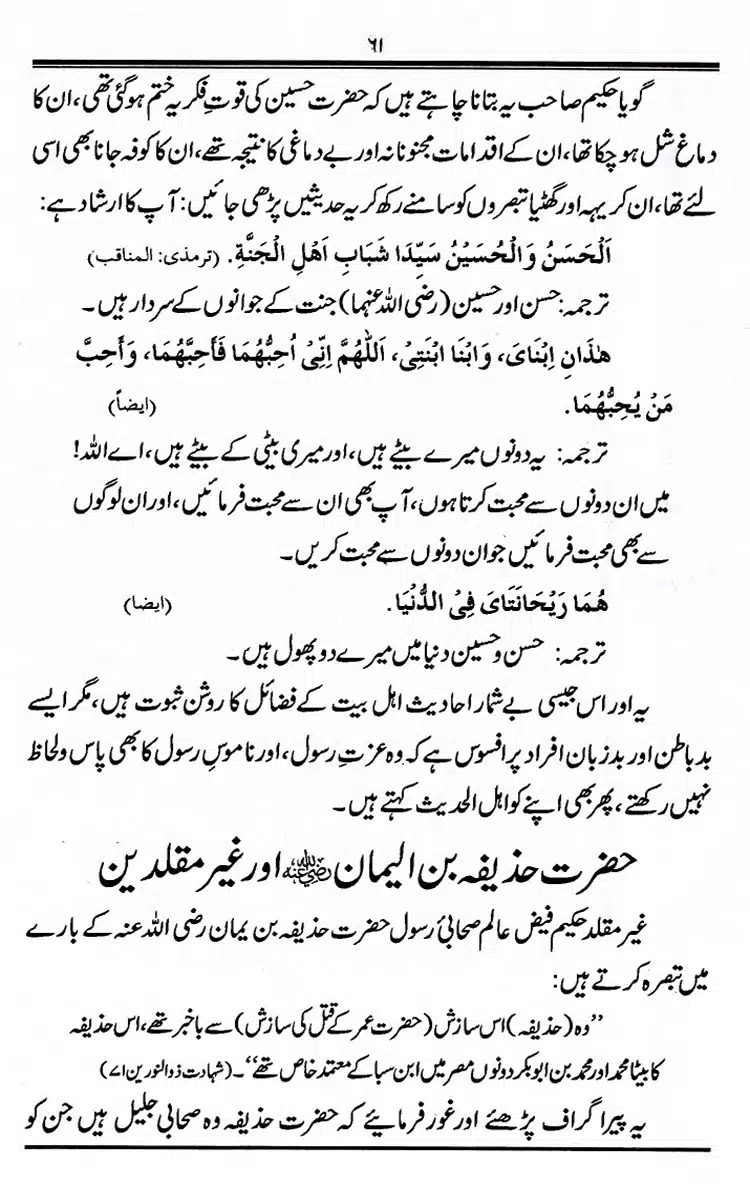 ۶۱
گویا حکیم صاحب یہ بتانا چاہتے ہیں کہ حضرت حسین کی قوتِ فکریہ ختم ہوگئی تھی، ان کا
دماغ شل ہو چکا تھا، ان کے اقدامات مجنونانہ اور بے دماغی کا نتیجہ تھے، ان کا کوفہ جانا بھی اسی
لئے تھا، ان کریہہ اور گھٹیا تبصروں کو سامنے رکھ کر یہ حدیثیں پڑھی جائیں: آپ کا ارشاد ہے:
اَلْحَسَنُ وَالْحُسَیْنُ سَیِّدَا شَبَابِ اَهْلِ الْجَنَّةِ. (ترمذی: المناقب)
ترجمہ: حسن اور حسین (رضی اللہ عنہما) جنت کے جوانوں کے سردار ہیں۔
هٰذَانِ اِبْنَایَ، وَابْنَا ابْنَتِیْ، اَللّٰهُمَّ اِنِّیْ اُحِبُّهُمَا فَأَحِبَّهُمَا، وَأَحِبَّ
مَنْ یُحِبُّهُمَا. (ایضاً)
ترجمہ: یہ دونوں میرے بیٹے ہیں، اور میری بیٹی کے بیٹے ہیں، اے اللہ!
میں ان دونوں سے محبت کرتا ہوں، آپ بھی ان سے محبت فرمائیں، اور ان لوگوں
سے بھی محبت فرمائیں جو ان دونوں سے محبت کریں۔
هُمَا رَیْحَانَتَایَ فِیْ الدُّنْیَا. (ایضا)
ترجمہ: حسن وحسین دنیا میں میرے دو پھول ہیں۔
یہ اور اس جیسی بے شمار احادیث اہل بیت کے فضائل کا روشن ثبوت ہیں، مگر ایسے
بد باطن اور بد زبان افراد پر افسوس ہے کہ وہ عزتِ رسول، اور ناموسِ رسول کا بھی پاس ولحاظ
نہیں رکھتے، پھر بھی اپنے کو اہل الحدیث کہتے ہیں۔
حضرت حذیفہ بن الیمان رضی اللہ عنہ اور غیر مقلدین
غیر مقلد حکیم فیض عالم صحابیٔ رسول حضرت حذیفہ بن یمان رضی اللہ عنہ کے بارے
میں تبصرہ کرتے ہیں:
”وہ (حذیفہ) اس سازش (حضرت عمر کے قتل کی سازش) سے باخبر تھے، اس حذیفہ
کا بیٹا محمد اور محمد بن ابوبکر دونوں مصر میں ابن سبا کے معتمد خاص تھے“۔ (شہادت ذوالنورین ۷۱)
یہ پیرا گراف پڑھئے اور غور فرمائیے کہ حضرت حذیفہ وہ صحابی جلیل ہیں جن کو